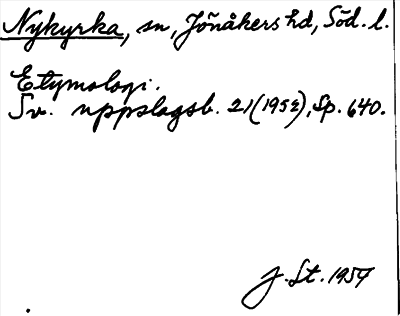 Nykyrka, sn, Jönåkers hd, Söd. l.
Etymologi.
Sv. uppslagsb. 21(1952), Sp. 640.
J. St. 1957